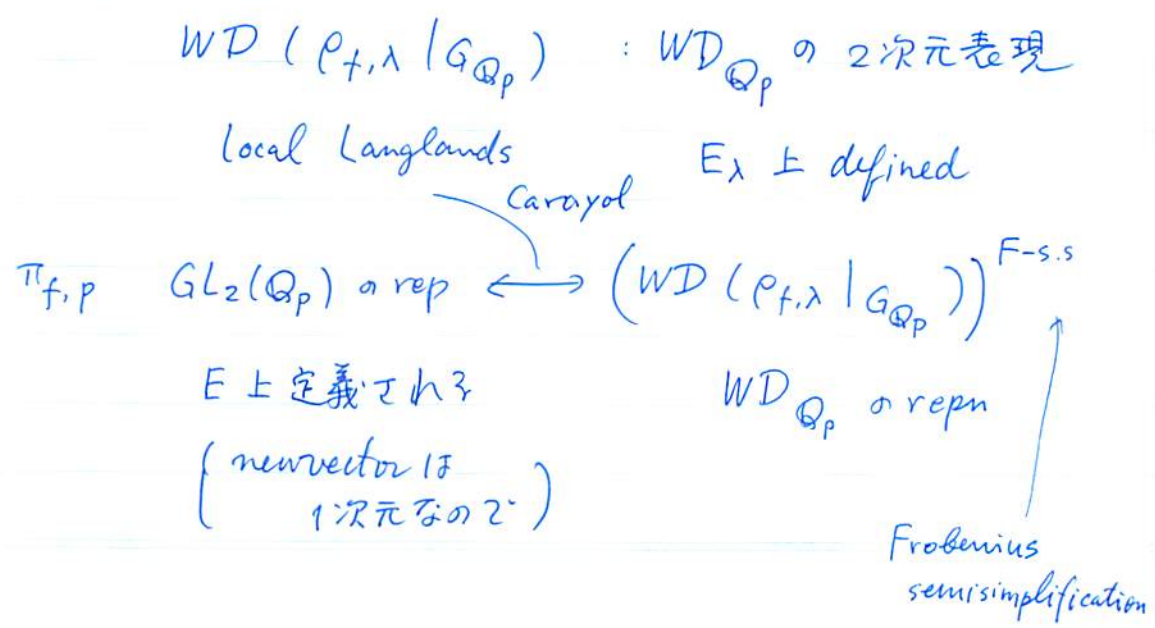 WD (ρ_{f,λ} |_{G_{Q_p}}) : WD_{Q_p} の 2次元表現
local Langlands E_λ 上 defined
Carayol
π_{f,p} GL_2(Q_p) の rep ⟷ (WD (ρ_{f,λ} |_{G_{Q_p}}))^{F-s.s}
E 上定義される WD_{Q_p} の repn
(newvectorは
1次元なので)
Frobenius
semisimplification